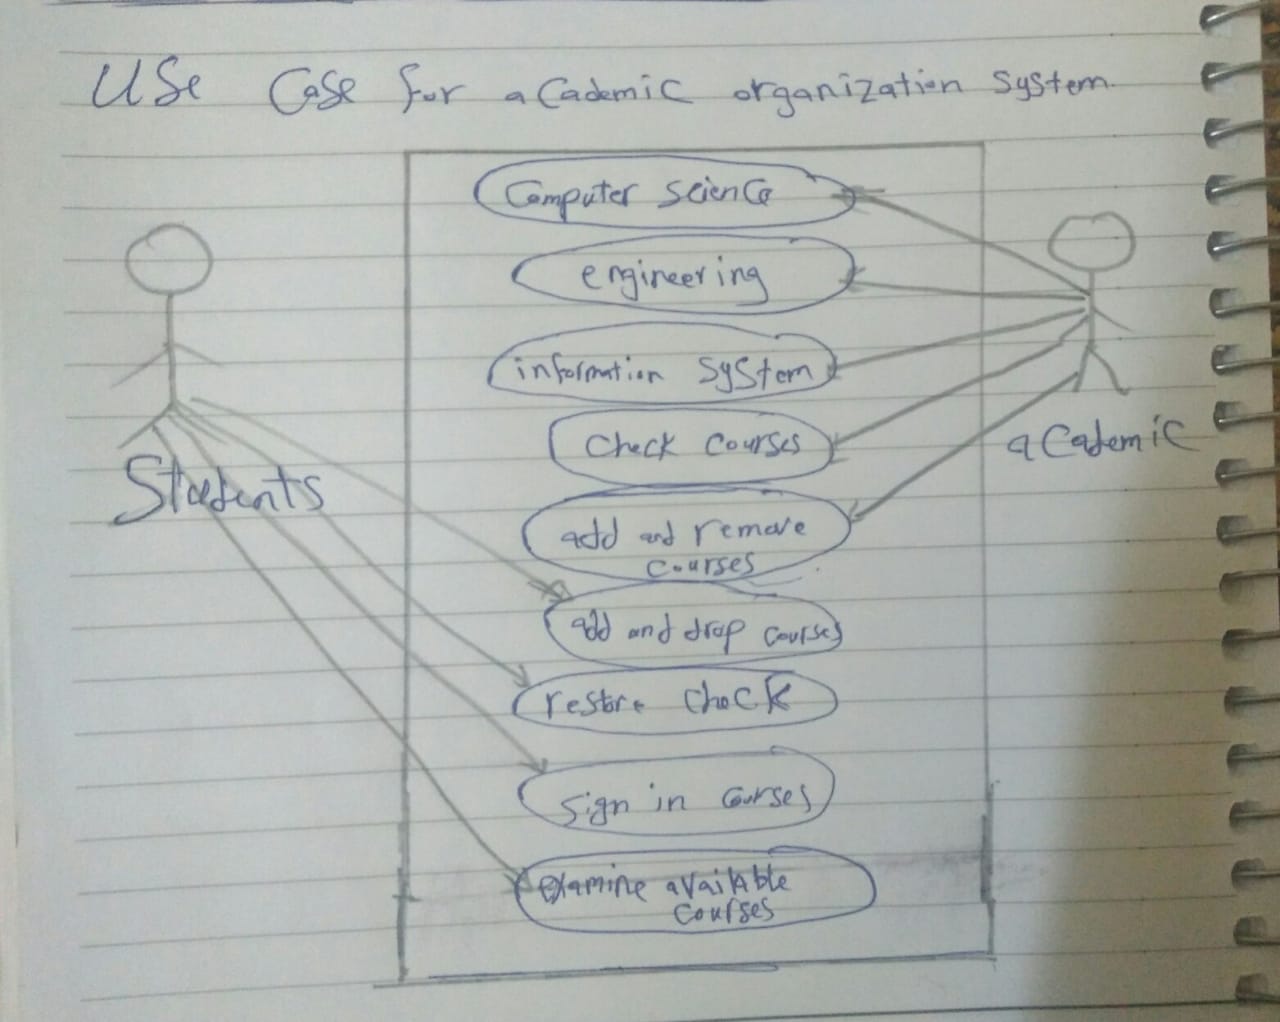 Use Case for academic organization system.
Computer science
engineering
information system
check courses
academic
Students
add and remove
courses
add and drop courses
restore check
sign in courses
examine available
courses